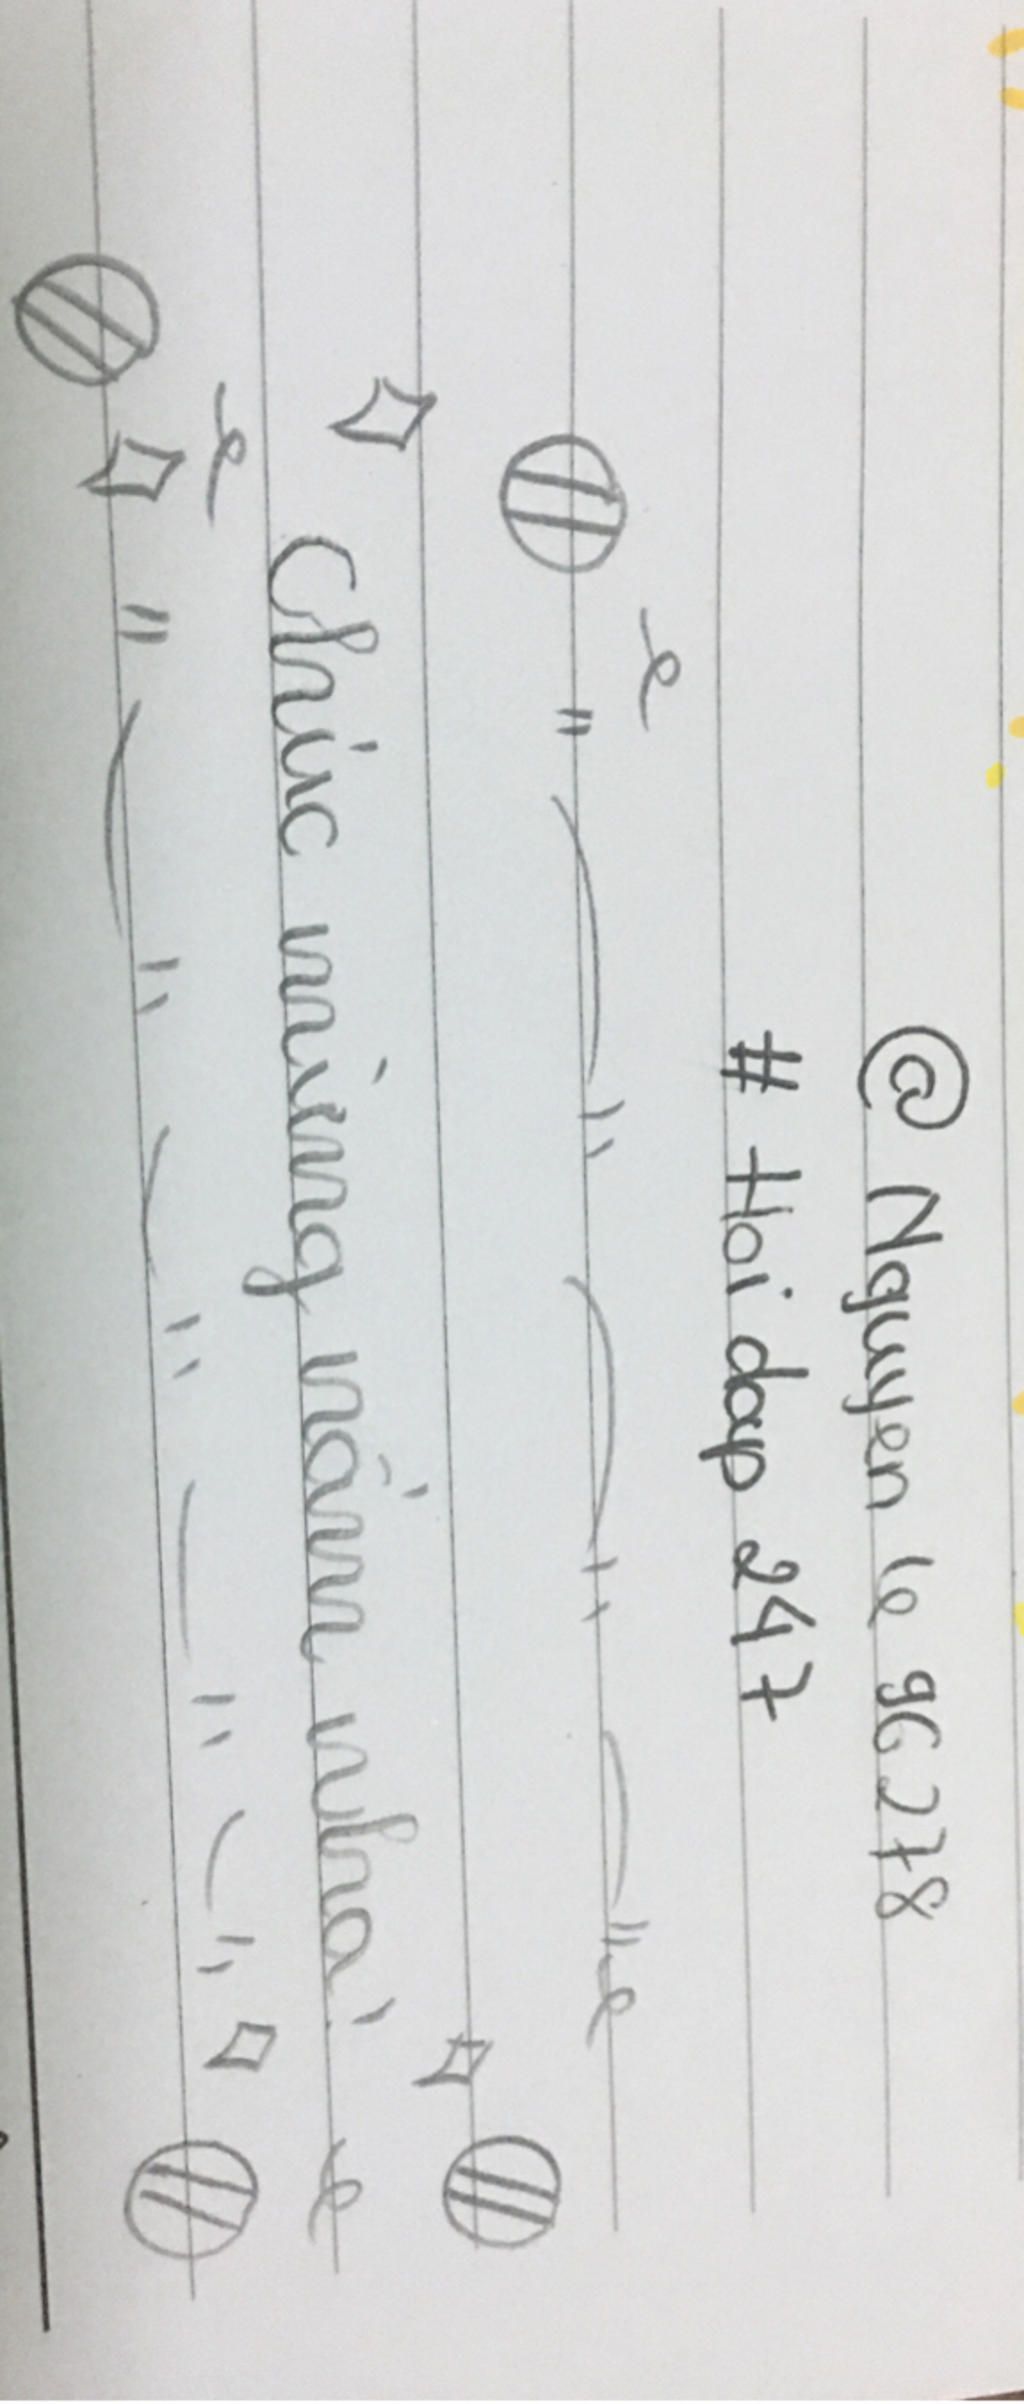 @ Nguyen le 96278
# Hoi dap 247
Chúc mừng nấm nhá